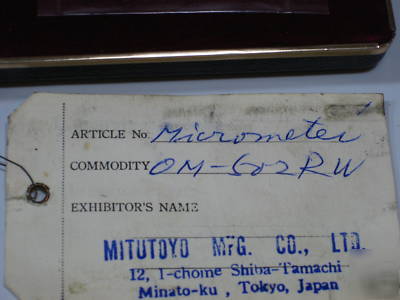 ARTICLE No. Micrometer
COMMODITY OM-502RW
EXHIBITOR'S NAME
MITUTOYO MFG. CO., LTD.
12, 1-chome Shiba-Tamachi
Minato-ku, Tokyo, Japan